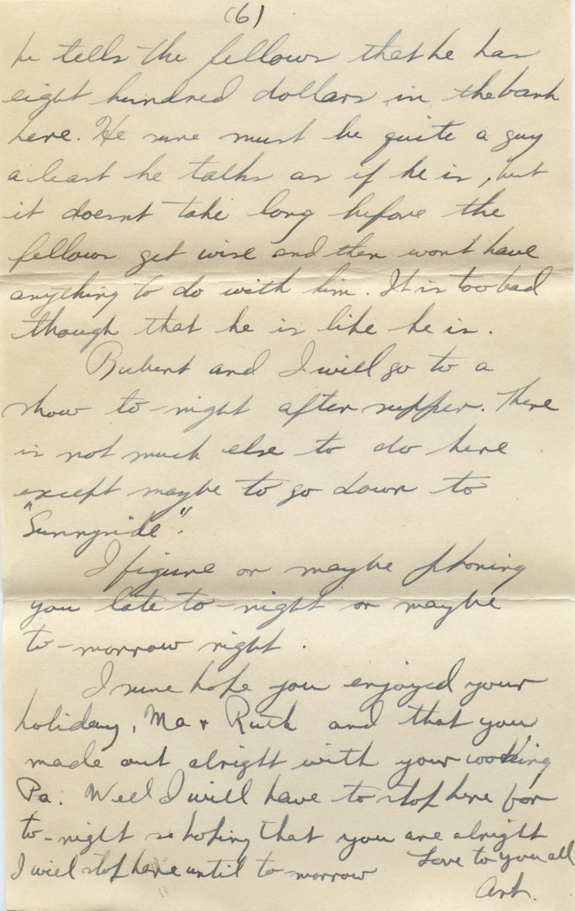 (6)
he tells the fellows that he has
eight hundred dollars in the bank
here. He sure must be quite a guy
a least he talks as if he is, but
it doesnt take long before the
fellows get wise and then wont have
anything to do with him. It is too bad
though that he is like he is.
Rubert and I will go to a
show to-night after supper. There
is not much else to do here
except maybe to go down to
"Sunnyside".
I figure or maybe phoning
you late to-night or maybe
to-morrow night.
I sure hope you enjoyed your
holiday, Ma & Ruth and that you
made out alright with your cooking
Pa. Well I will have to stop here for
to-night so hoping that you are alright
I will stop here until to-morrow Love to you all
Art.